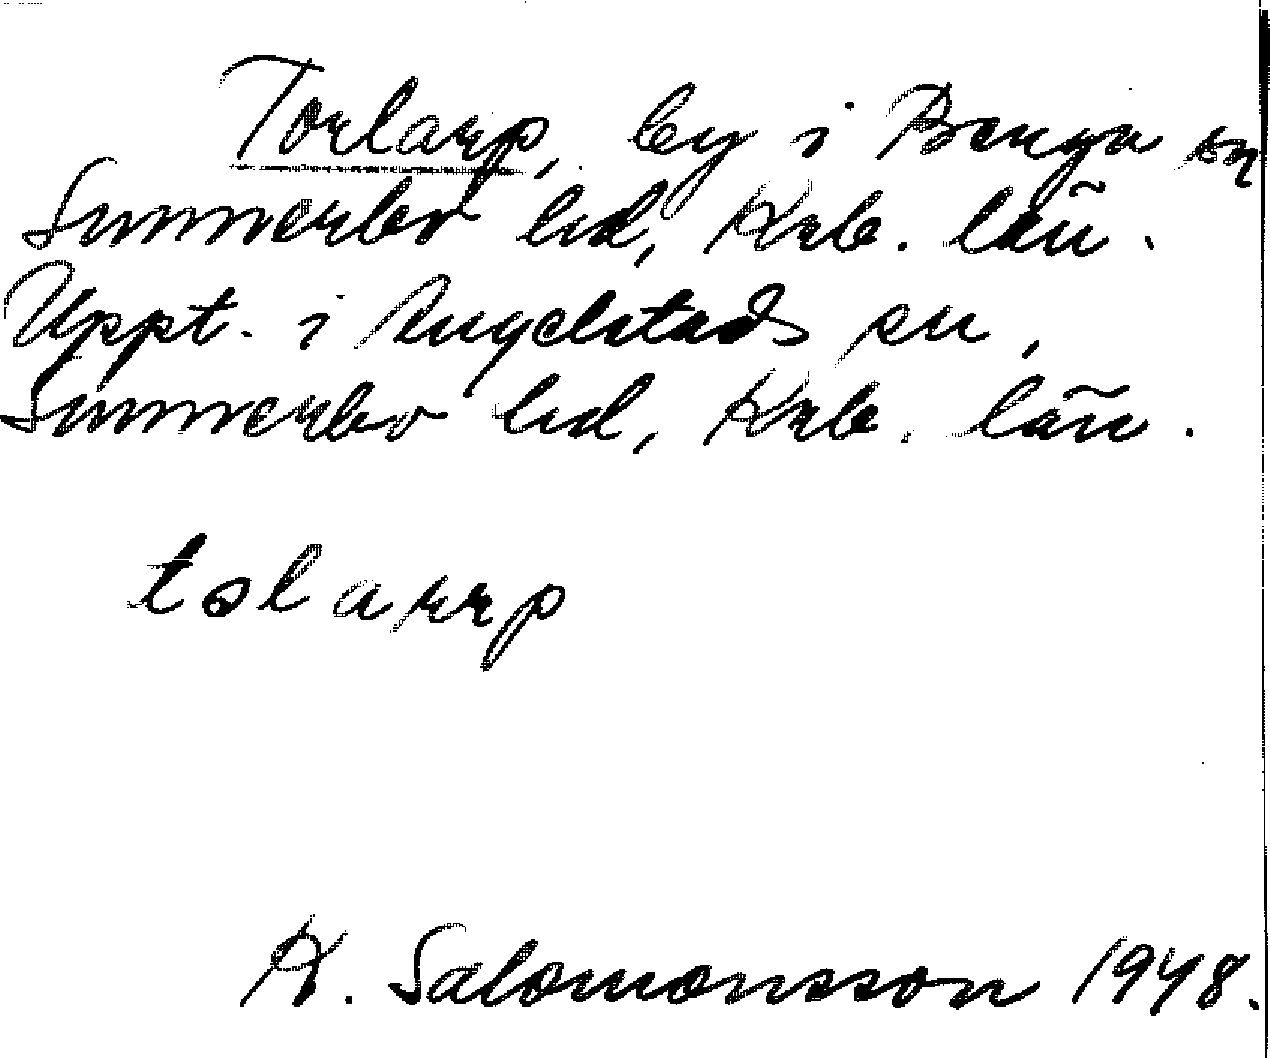 Torlarp, by i Berga sn
Sunnerbo hd, Krb. län.
Uppt. i Angelstads sn,
Sunnerbo hd, Krb. län.
tolarrp
A. Salomonsson 1948.